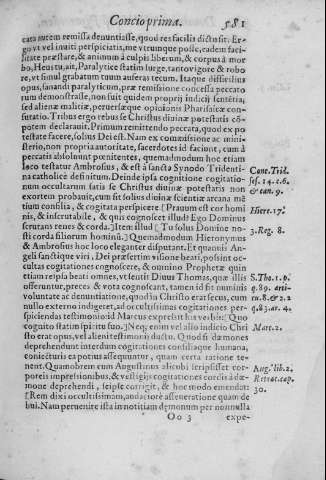 Concio prima. 581
cata autem remissa denuntiasse, quod res facilis dictu sit. Er-
go vt vel inuiti perspiciatis, me vtrumque posse, eadem faci-
litate præstare, & animum à culpis liberum, & corpus à mor
bo, Heus tu, ait, Paralytice statim surge, tanto vigore & robo
re, vt simul grabatum tuum auferas tecum. Itaque difficilius
opus, sanandi paralyticum, præ remissione concessa peccato
rum demonstrasse, non fuit quidem proprij iudicij sententia,
sed alienæ malitiæ, peruersæque opinionis Pharisaicæ con-
futatio. Tribus ergo rebus se Christus diuinæ potestatis cõ-
potem declarauit. Primum remittendo peccata, quod ex po
testate facere, solius Dei est. Nam ex commissione ac mini-
sterio, non propria autoritate, sacerdotes id faciunt, cum à
peccatis absoluunt pœnitentes, quemadmodum hoc etiam
loco testatur Ambrosius, & est à sancta Synodo Tridenti-
na catholicè definitum. Deinde ipsa cognitione cogitatio-
num occultarum satis se Christus diuinæ potestatis non
exortem probauit, cum sit solius diuinæ scientiæ arcana mẽ
tium consilia, & cogitata perspicere. [Prauum est cor homi
nis, & inscrutabile, & quis cognoscet illud? Ego Dominus
scrutans renes & corda.] Item illud [Tu solus Domine no-
sti corda filiorum hominũ.] Quemadmodum Hieronymus
& Ambrosius hoc loco eleganter disputant. Et quamuis An-
geli sanctique viri, Dei præsertim visione beati, possint oc-
cultas cogitationes cognoscere, & omnino Prophetæ quin
etiam re ipsa beati omnes, vt sentit Diuus Thomas, quæ illis
offeruntur, preces & vota cognoscant, tamen id fit numinis
voluntate ac denuntiatione, quod in Christo erat secus, cum
nullo externo indigeret, ad occultissimas cogitationes per-
spiciendas testimonio id Marcus expressit his verbis: [Quo
cognito statim spiritu suo.] Neque enim vel alio indicio Chri
sto erat opus, vel alieni testimonij ductu. Quod si dæmones
deprehendunt interdum cogitationes consiliaque humana,
coniecturis ea potius assequuntur, quam certa ratione te-
nent. Quamobrem cum Augustinus alicubi scripsisset cor-
poreis impressionibus, & vestigijs cogitationes cordis à dæ-
mone deprehendi, seipse corrigit, & hoc modo emendat:
[Rem dixi occultissimam, audaciore asseueratione quam de
bui. Nam peruenire ista in notitiam dæmonum per nonnulla
Oo 3 expe-
Conc. Trid.
ses. 14. c. 6.
& can. 9.
Hiere. 17.
3. Reg. 8.
S. Tho. 1. p.
q. 89. arti-
cu. 8. & 2. 2
q. 83. ar. 4.
Mar. 2.
Aug. lib. 2.
Retrac. cap.
30.